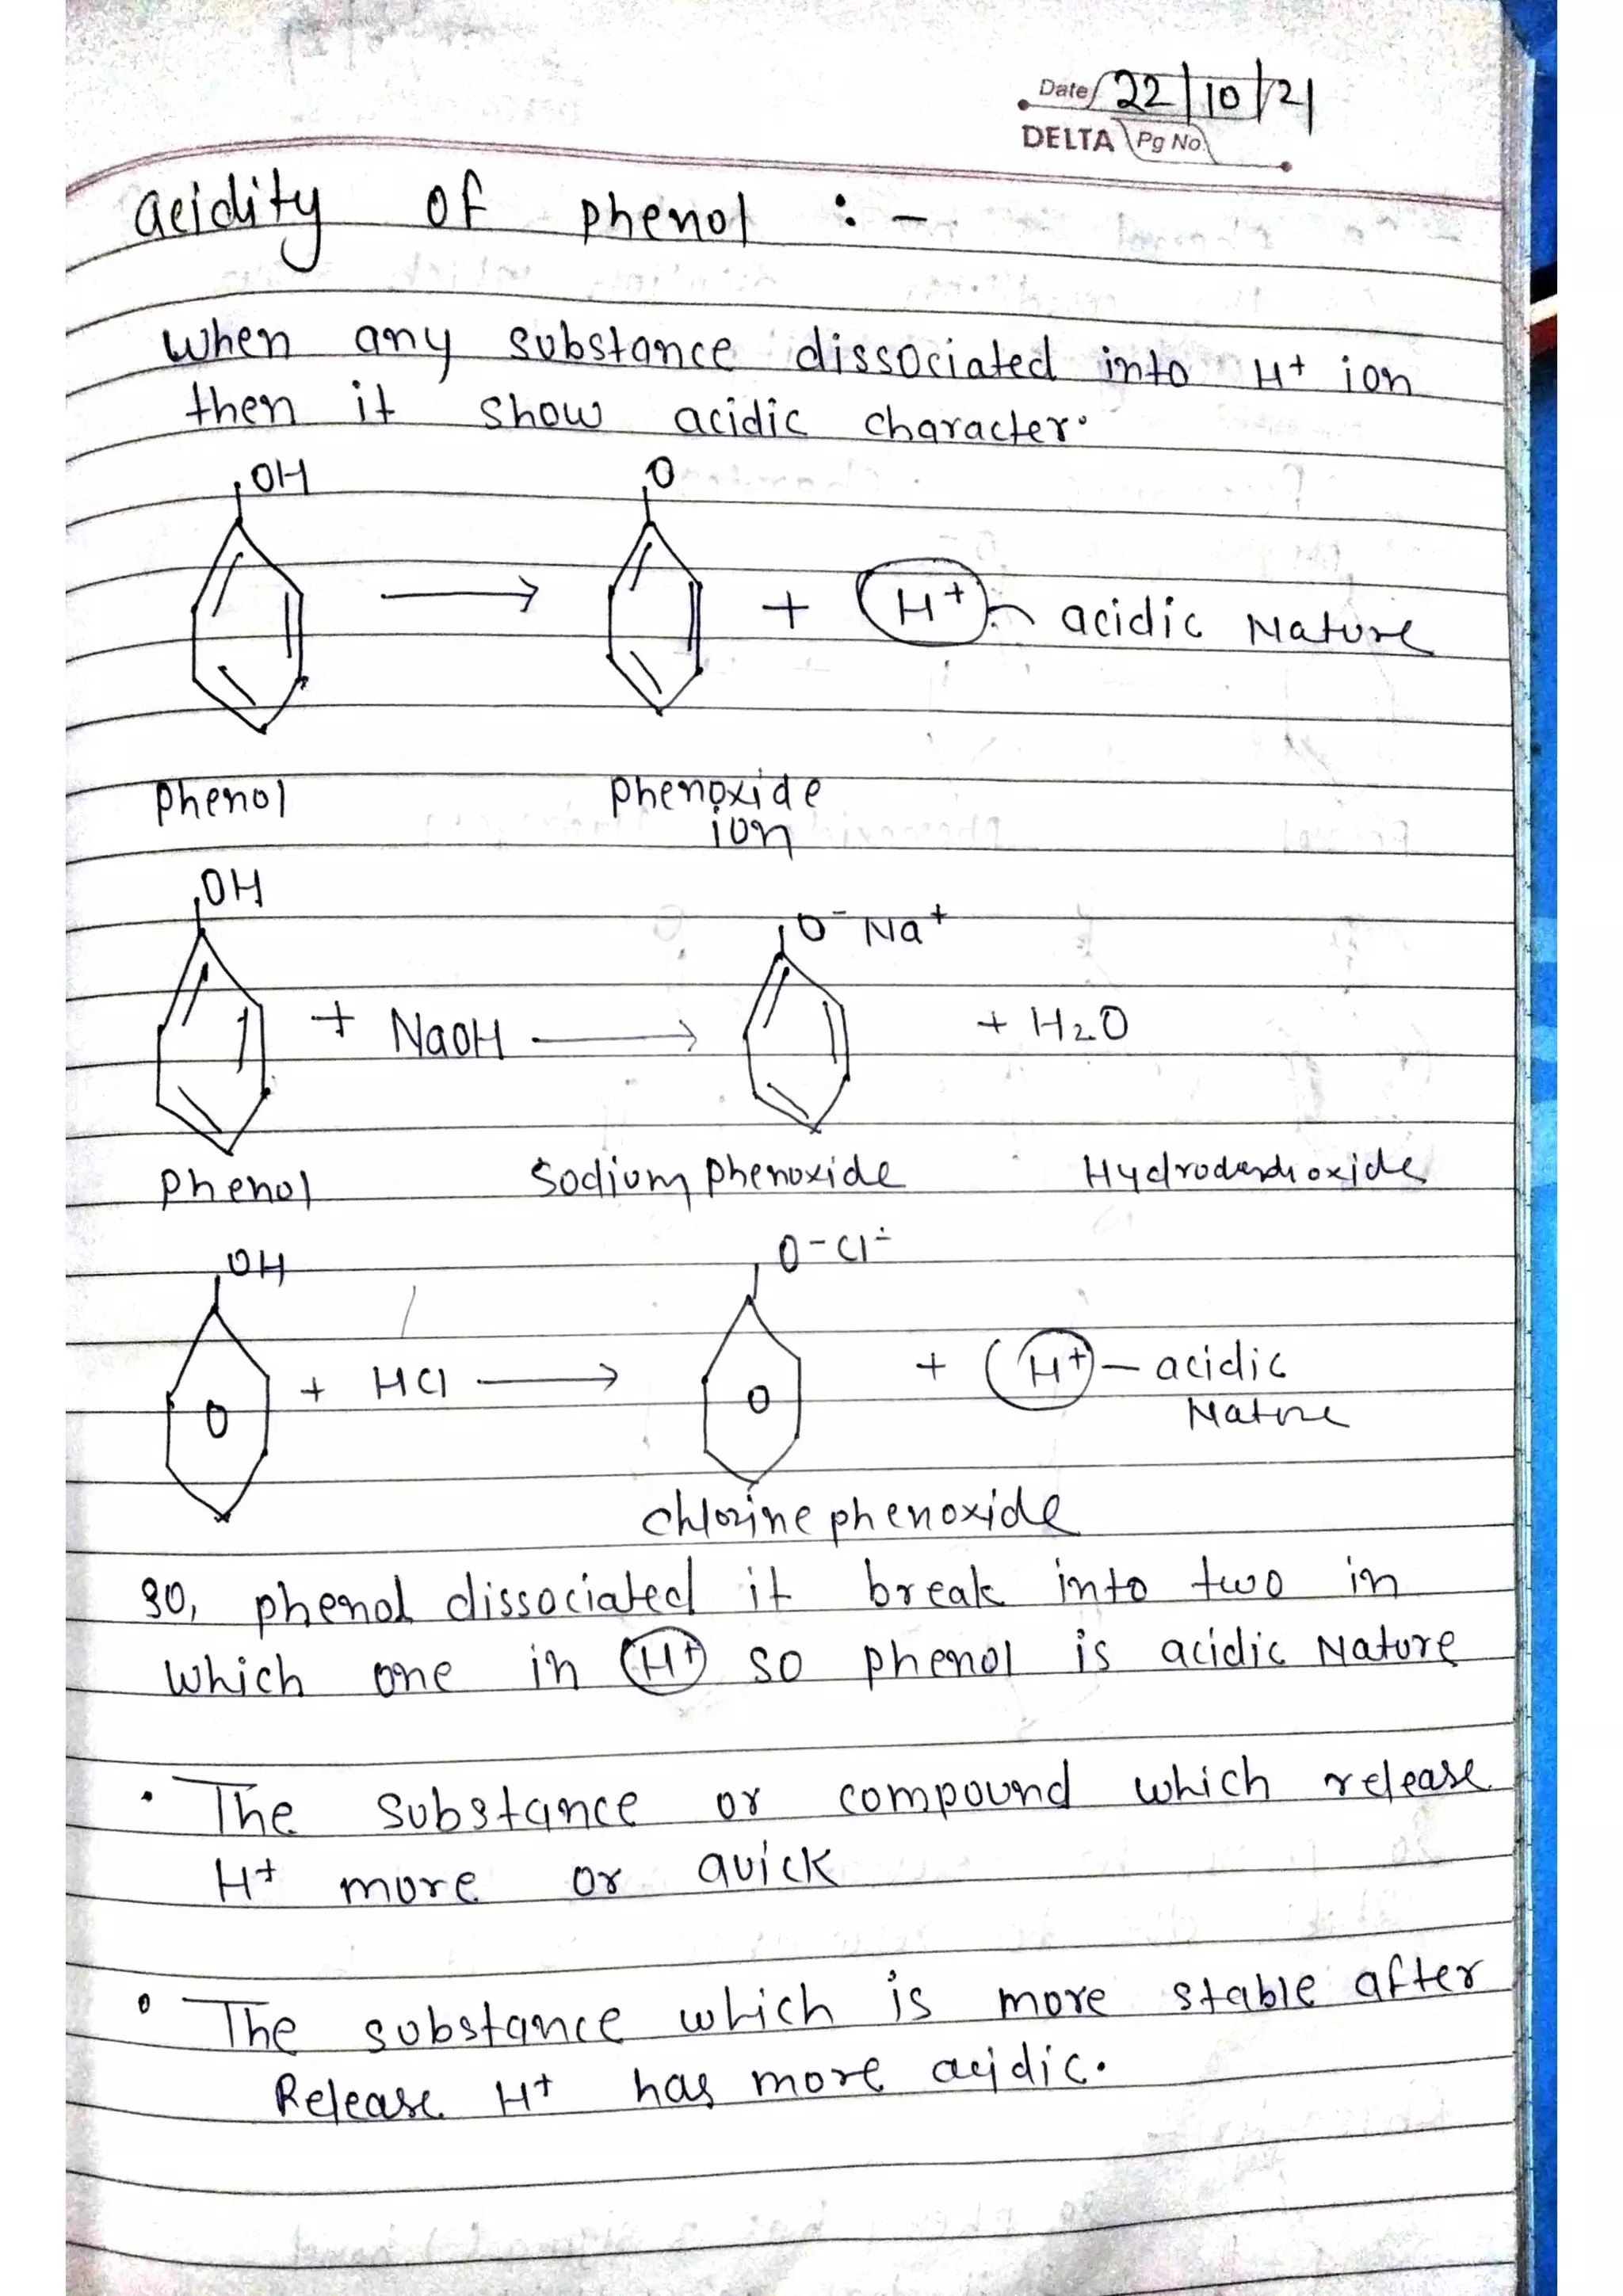 Date 22/10/21
DELTA Pg No.
acidity of phenol :-
when any substance dissociated into H+ ion
then it show acidic character.
OH O
+ H+ acidic Nature
phenol phenoxide
ion
OH O- Na+
+ NaOH + H2O
phenol Sodium phenoxide
OH O-Cl-
+ HCl + H+ - acidic
Nature
chlorine phenoxide
so, phenol dissociated it break into two in
which one in H+ so phenol is acidic Nature
• The substance or compound which release
H+ more or quick
• The substance which is more stable after
Release H+ has more acidic.